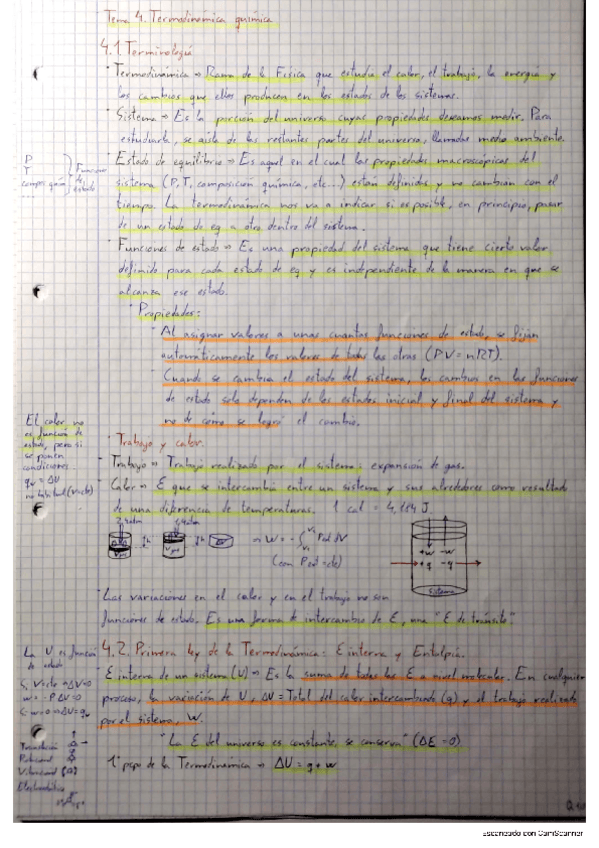 Tema 4. Termodinámica química
4.1. Terminología
· Termodinámica → Rama de la Física que estudia el calor, el trabajo, la energía y
los cambios que ellos producen en los estados de los sistemas.
· Sistema → Es la porción del universo cuyas propiedades deseamos medir. Para
estudiarla, se aisla de las restantes partes del universo, llamadas medio ambiente.
P
T
compos quím
...
Funciones de estado
· Estado de equilibrio → Es aquel en el cual las propiedades macroscópicas del
sistema (P, T, composición química, etc...) están definidas y no cambian con el
tiempo. La termodinámica nos va a indicar si es posible, en principio, pasar
de un estado de eq a otro dentro del sistema.
· Funciones de estado → Es una propiedad del sistema que tiene cierto valor
definido para cada estado de eq y es independiente de la manera en que se
alcanza ese estado.
· Propiedades:
· Al asignar valores a unas cuantas funciones de estado, se fijan
automáticamente los valores de todas las otras (PV = nRT).
· Cuando se cambia el estado del sistema, los cambios en las funciones
de estado solo dependen de los estados inicial y final del sistema y
no de cómo se logró el cambio.
El calor no
es función de
estado, pero si
se ponen
condiciones...
qv = ΔU
· Trabajo y calor.
· Trabajo → Trabajo realizado por el sistema: expansión de gas.
· Calor → E que se intercambia entre un sistema y sus alrededores como resultado
de una diferencia de temperaturas. 1 cal = 4,184 J.
→ W = - ∫ Pext dV
(con Pext = cte)
+w -w
+q -q
sistema
· Las variaciones en el calor y en el trabajo no son
funciones de estado. Es una forma de intercambio de E, una "E de tránsito".
La U es función
de estado
Si V = cte → ΔV = 0
w = -P·ΔV = 0
Si w = 0 → ΔU = qv
4.2. Primera ley de la Termodinámica: E interna y Entalpía.
· E interna de un sistema (U) → Es la suma de todas las E a nivel molecular. En cualquier
proceso, la variación de U, ΔU = Total del calor intercambiado (q) y el trabajo realizado
por el sistema, W.
"La E del universo es constante, se conserva" (ΔE = 0)
1er ppo de la Termodinámica → ΔU = q + w
Traslación
Rotacional
Vibracional
Electrónica
Escaneado con CamScanner